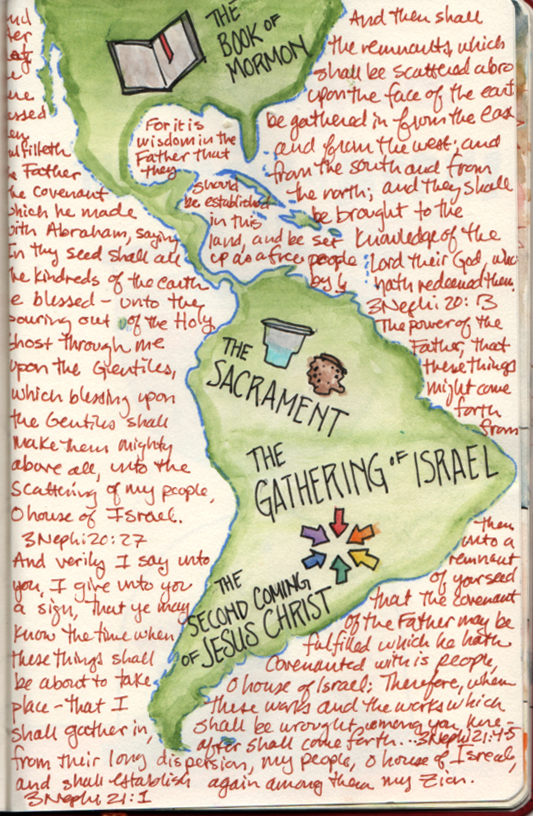 THE
BOOK OF
MORMON
THE
SACRAMENT
THE
GATHERING OF ISRAEL
THE
SECOND COMING
OF JESUS CHRIST
ulfilleth
Father
he covenant
hich he made
ith Abraham, saying
In thy seed shall all
he kindreds of the earth
e blessed - unto the
pouring out of the Holy
Ghost through me
upon the Gentiles,
which blessing upon
the Gentiles shall
make them mighty
above all, unto the
scattering of my people,
O house of Israel.
3 Nephi 20:27
And verily I say unto
you, I give unto you
a sign, that ye may
know the time when
these things shall
be about to take
place - that I
shall gather in,
from their long dispersion, my people, O house of Israel,
and shall establish again among them my Zion.
3 Nephi 21:1
And then shall
the remnants, which
shall be scattered abro
upon the face of the eart
be gathered in from the east
and from the west; and
from the south and from
the north; and they shall
be brought to the
knowledge of the
Lord their God, who
hath redeemed them.
3 Nephi 20:13
For it is
wisdom in the
Father that
they
should
be established
in this
land, and be set
up as a free people
by
The power of the
Father, that
these things
might come
forth
from
them
unto a
remnant
of your seed
that the covenant
of the Father may be
fulfilled which he hath
covenanted with is people,
O house of Israel; Therefore, when
these works and the works which
shall be wrought among you here-
after shall come forth... 3 Nephi 21:4-5